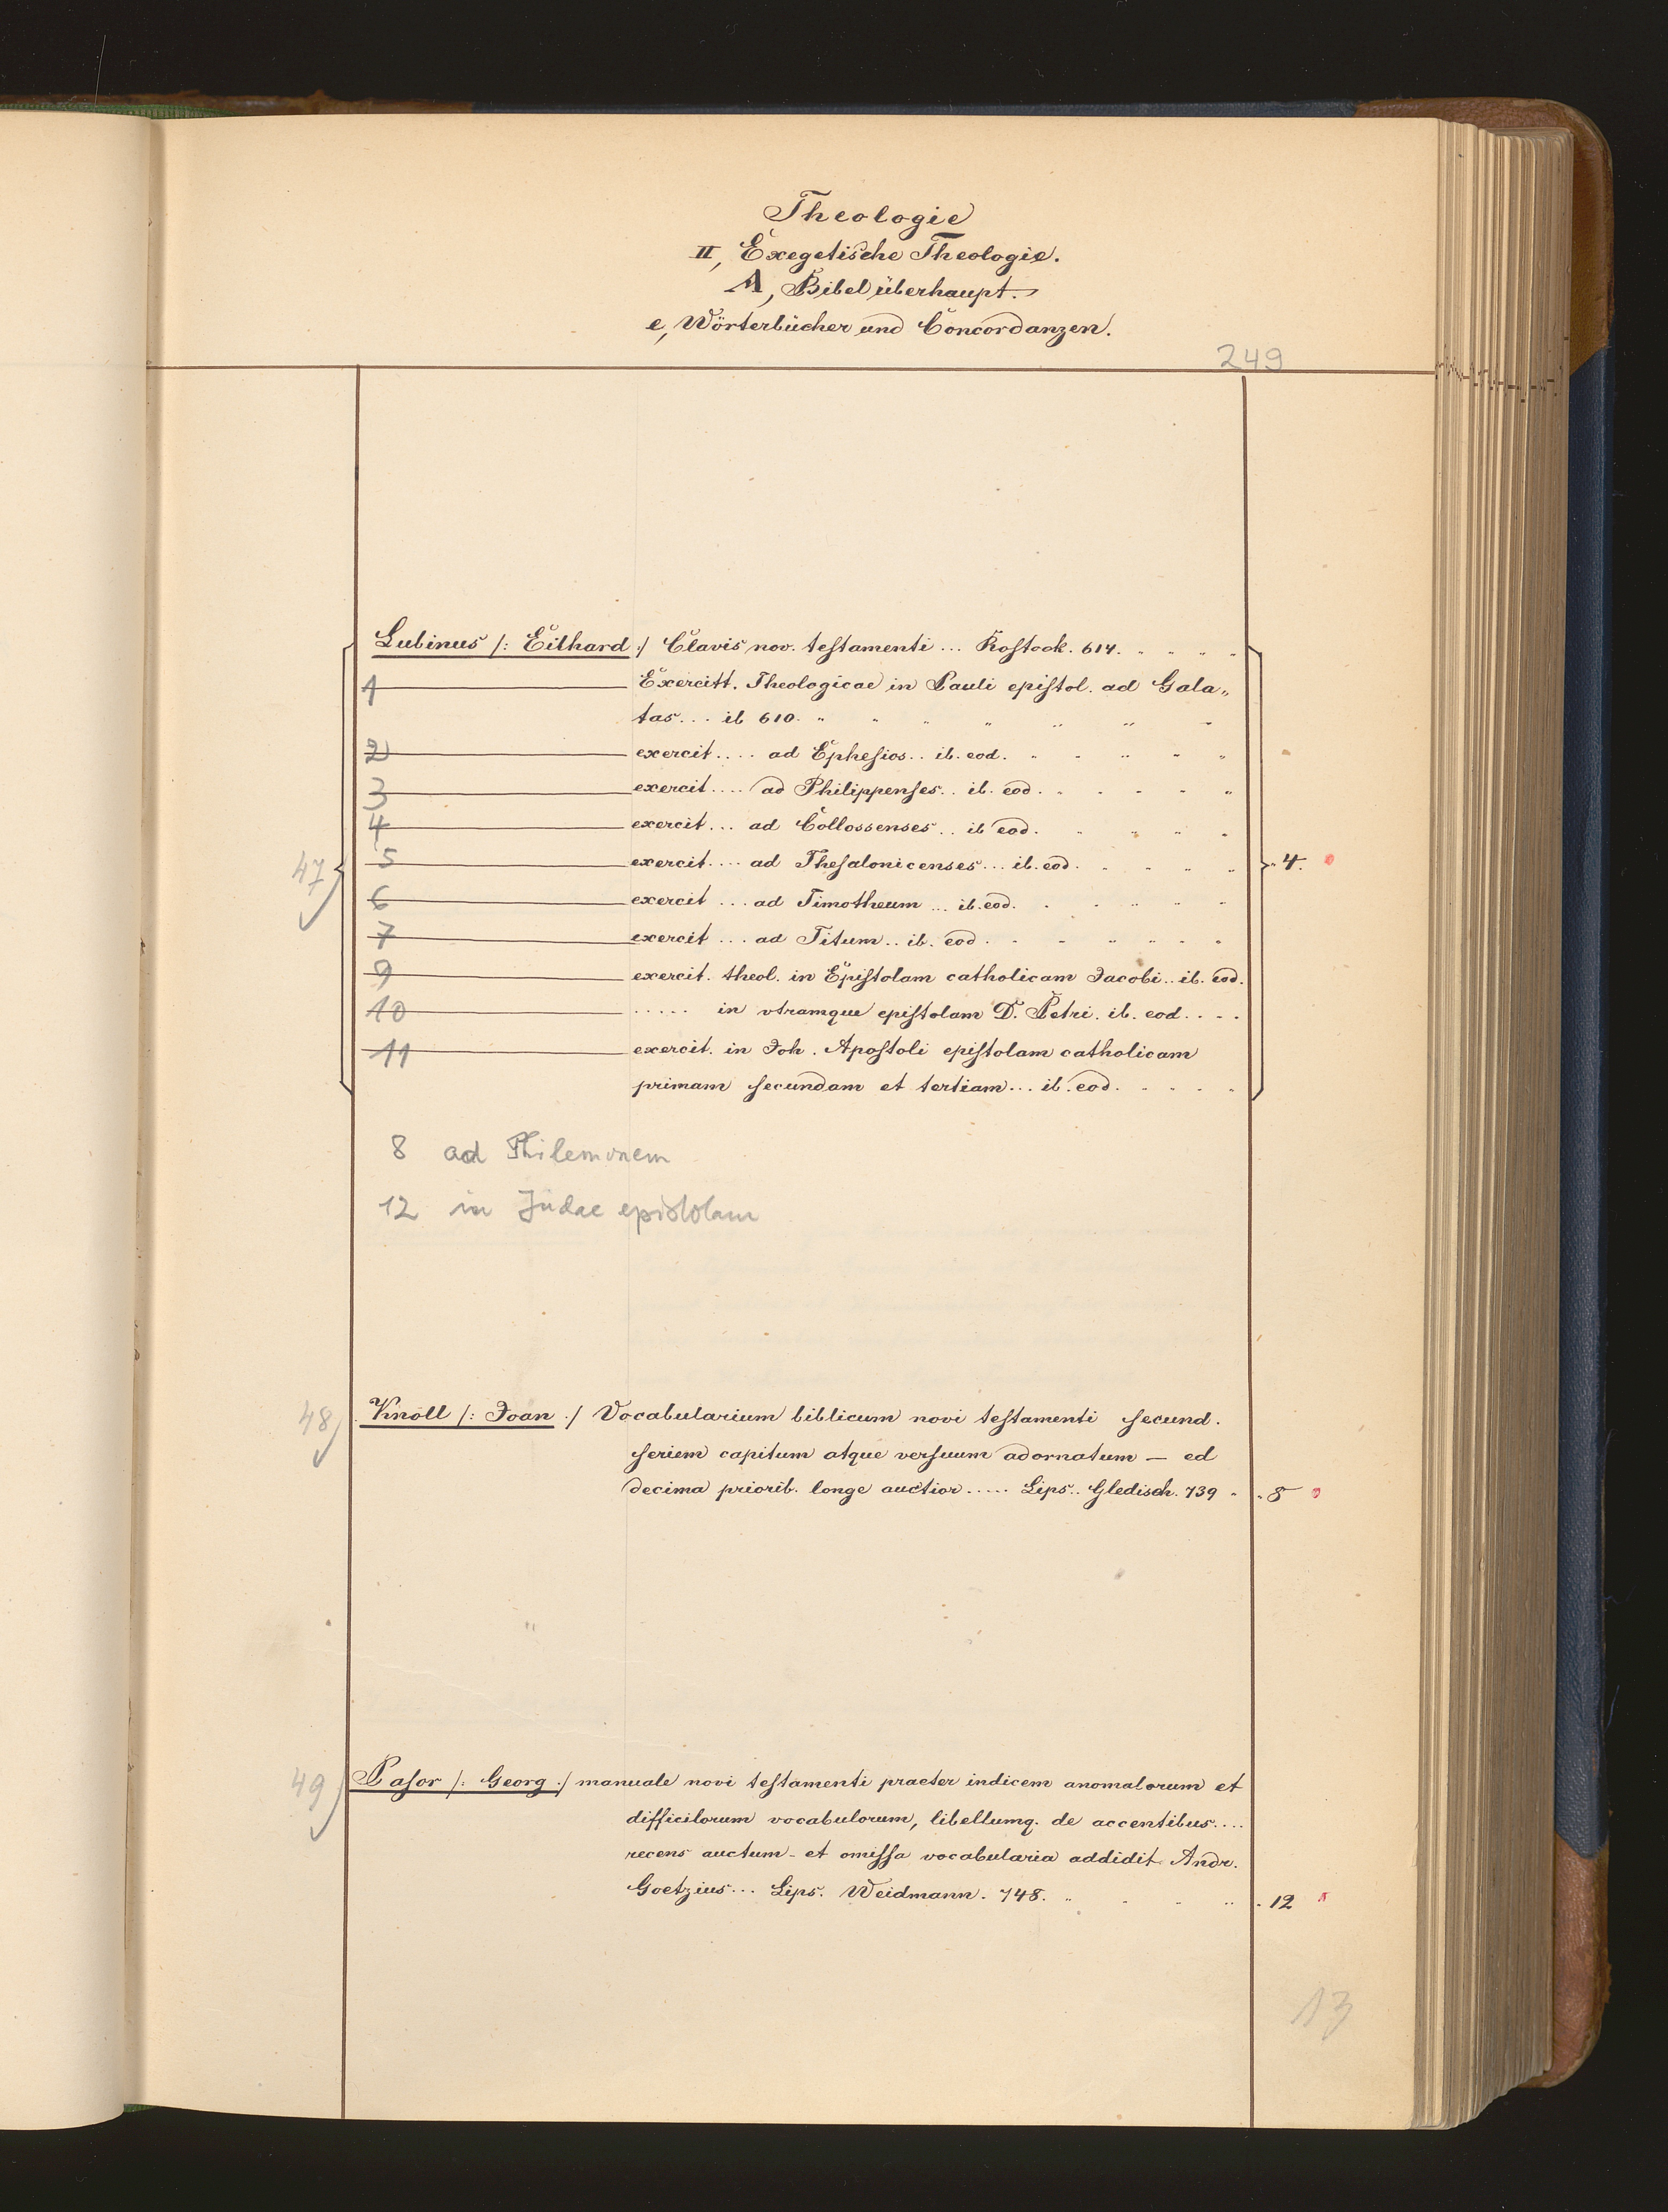 Theologie
II, Exegetische Theologie.
A, Bibel überhaupt.
e, Wörterbücher und Concordanzen.
249
Lubinus /: Eilhard :/ Clavis nov. testamenti ... Rostock. 614.
1 Exercitt. Theologicae in Pauli epistol. ad Gala„
tas... ib 610.
2 exercit.... ad Ephesios.. ib. eod.
3 exercit.... ad Philippenses.. ib. eod.
4 exercit... ad Collossenses.. ib eod.
47 5 exercit.... ad Thesalonicenses... ib. eod. 4.
6 exercit ... ad Timotheum ... ib. eod.
7 exercit ... ad Titum.. ib. eod.
9 exercit. theol. in Epistolam catholicam Jacobi.. ib. eod.
10 ..... in vtramque epistolam D. Petri. ib. eod....
11 exercit. in Joh. Apostoli epistolam catholicam
primam secundam et tertiam... ib. eod.
8 ad Philemonem
12 in Judae epistolam
48 Knöll /: Joan :/ Vocabularium biblicum novi testamenti secund.
seriem capitum atque versuum adornatum — ed
decima priorib. longe auctior..... Lips.. Gledisch. 739 8
49 Pasor /: Georg :/ manuale novi testamenti praeter indicem anomalorum et
difficilorum vocabulorum, libellumq. de accentibus....
recens auctum - et omissa vocabularia addidit Andr.
Goetzius... Lips. Weidmann. 748. 12
13